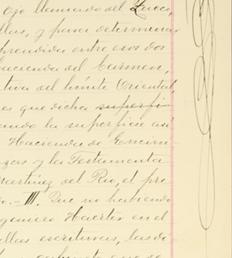 Ojo llamado del Zarco,
llas, y para determinar
prendida entre esos dos
hacienda del Carmen,
tiva del límite Oriental
es que dicha superfi
ando la superficie as
Hacienda de Encar
y la Testamenta
Martínez del Rio, el pro
o.-III. Que no habiendo
geniero Huerta en el
llas escrituras, las de